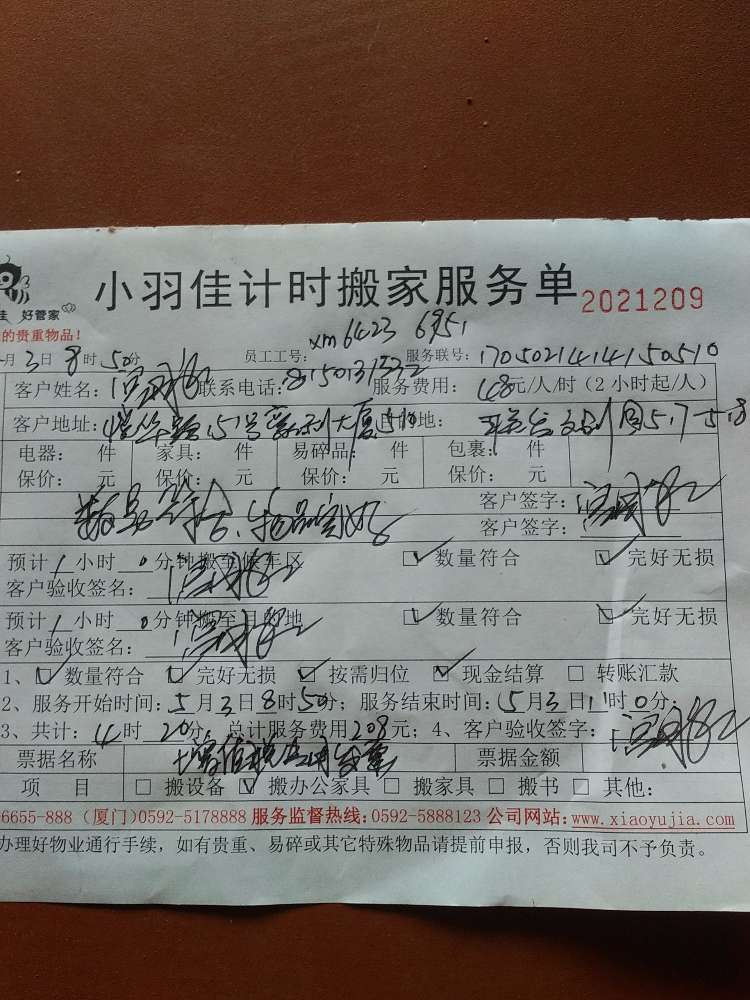 小羽佳计时搬家服务单 2021209
佳 好管家
的贵重物品！
月3日8时50分 员工工号：xm6423 6951 服务联号：1705021414150510
客户姓名： 联系电话： 服务费用：48元/人/时（2小时起/人）
客户地址： 151号 大厦 地：
电器： 件 家具： 件 易碎品： 件 包裹： 件
保价： 元 保价： 元 保价： 元 保价： 元
数量符合、物品完好 客户签字：
客户签字：
预计1小时0分钟搬至候车区 数量符合 完好无损
客户验收签名：
预计1小时0分钟搬至目的地 数量符合 完好无损
客户验收签名：
1、 数量符合 完好无损 按需归位 现金结算 转账汇款
2、服务开始时间：5月3日8时50分；服务结束时间：5月3日11时0分；
3、共计：4时20分，总计服务费用208元；4、客户验收签字：
票据名称 票据金额
项 目 搬设备 搬办公家具 搬家具 搬书 其他：
6655-888（厦门）0592-5178888 服务监督热线：0592-5888123 公司网站：www.xiaoyujia.com
办理好物业通行手续，如有贵重、易碎或其它特殊物品请提前申报，否则我司不予负责。